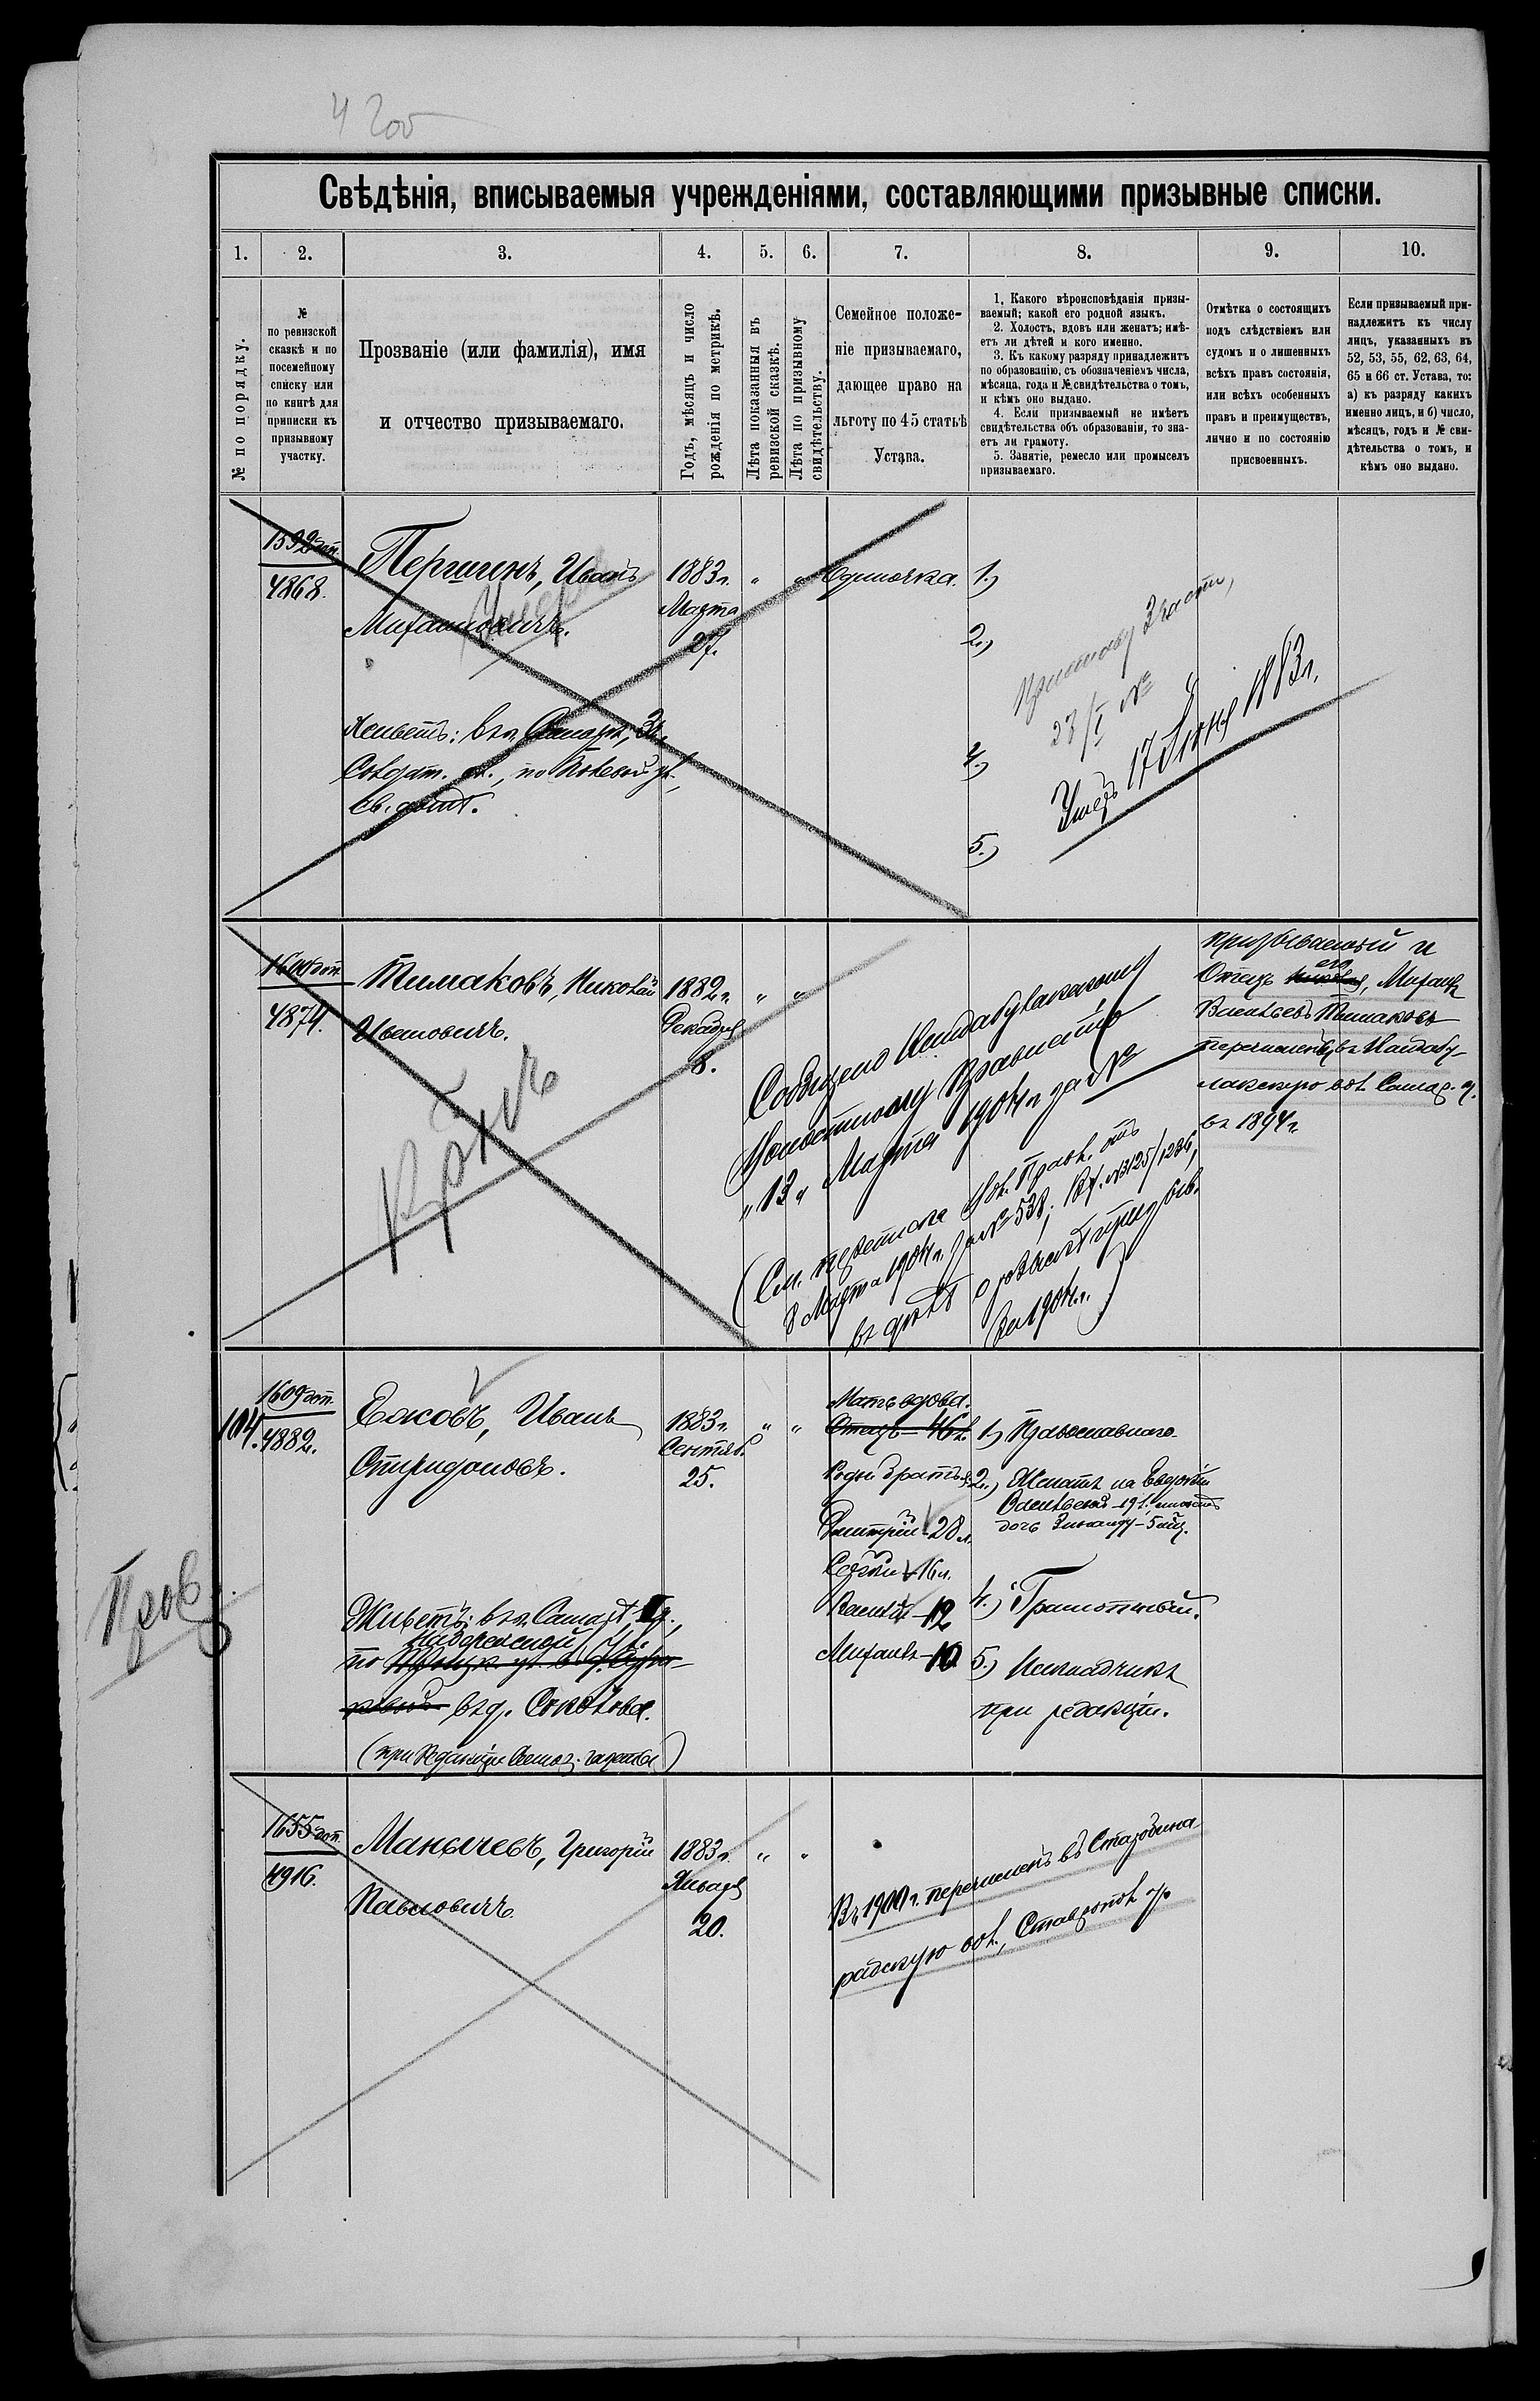 Свѣдѣнія, вписываемыя учрежденіями, составляющими призывные списки.
1. 2. 3. 4. 5. 6. 7. 8. 9. 10.
№ по порядку.
№
по ревизской
сказкѣ и по
посемейному
списку или
по книгѣ для
приписки къ
призывному
участку.
Прозваніе (или фамилія), имя
и отчество призываемаго.
Годъ, мѣсяцъ и число
рожденія по метрикѣ.
Лѣта показанныя въ
ревизской сказкѣ.
Лѣта по призывному
свидѣтельству.
Семейное положе-
ніе призываемаго,
дающее право на
льготу по 45 статьѣ
Устава.
1. Какого вѣроисповѣданія призы-
ваемый; какой его родной языкъ.
2. Холостъ, вдовъ или женатъ; имѣ-
етъ ли дѣтей и кого именно.
3. Къ какому разряду принадлежитъ
по образованію, съ обозначеніемъ числа,
мѣсяца, года и № свидѣтельства о томъ,
и кѣмъ оно выдано.
4. Если призываемый не имѣетъ
свидѣтельства объ образованіи, то зна-
етъ ли грамоту.
5. Занятіе, ремесло или промыселъ
призываемаго.
Отмѣтка о состоящихъ
подъ слѣдствіемъ или
судомъ и о лишенныхъ
всѣхъ правъ состоянія,
или всѣхъ особенныхъ
правъ и преимуществъ,
лично и по состоянію
присвоенныхъ.
Если призываемый при-
надлежитъ къ числу
лицъ, указанныхъ въ
52, 53, 55, 62, 63, 64,
65 и 66 ст. Устава, то:
а) къ разряду какихъ
именно лицъ, и б) число,
мѣсяцъ, годъ и № сви-
дѣтельства о томъ, и
кѣмъ оно выдано.
1592 доп.
4868.
Першинъ, Иванъ
Михайловичъ.
Живетъ: въ г. Самарѣ, 3 ч.
Солдат. ул., по Полевой ул.,
св. домѣ.
1883 г.
Марта
27.
" "
Одиночка.
1.)
2.)
4.)
5.)
Приставу 3 части,
23/I №
Умеръ 17 Іюня 1883 г.
4874.
Тимаковъ, Николай
Ивановичъ.
1882 г.
Декабря
8.
" "
Волостному Правленію
"13" Марта 1904 г. за №
(См. Вол. Правл. отъ
8 Марта 1904 г. за № 538; Вх. № 3125/1286,
въ дѣлѣ о розыскѣ призыв.
за 1904 г.)
призываемый и
Отецъ его, Михаилъ
Васильевъ Тимаковъ
вол. Самар. у.
въ 1894 г.
104.
1609 доп.
4882.
Ежовъ, Иванъ
Спиридоновъ.
Живетъ: въ г. Самарѣ
Набережной
по
въ д. Соколова.
(при Редакціи Самар. газеты)
1883 г.
Сентяб.
25.
" "
Мать вдова.
Отецъ — 46 л.
Родн. братья:
Дмитрій - 28 л.
Сергѣй - 16 л.
Василій - 12
Михаилъ - 10
1.) Православнаго
2.) Женатъ на Евдокіи
Васильевой - 19 л. имѣетъ
дочь Зинаиду - 5 мѣс.
4.) Грамотный.
5.) Накладчикъ
при редакціи.
Пров
1655 доп.
4916.
Манычевъ, Григорій
Павловичъ
1883 г.
Января
20.
" "
Въ 1900 г. перечисленъ въ Старобина-
радскую вол., Ставропол. у.